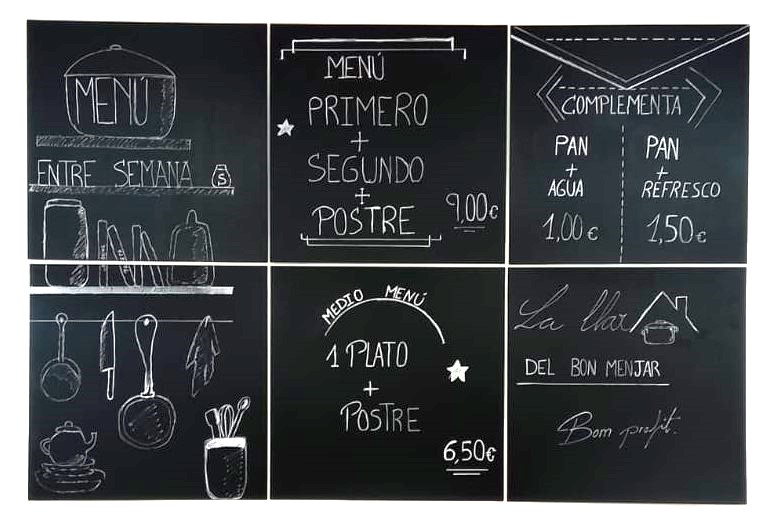 MENÚ
ENTRE SEMANA
S
MENÚ
PRIMERO
+
SEGUNDO
+
POSTRE
9,00€
COMPLEMENTA
PAN
+
AGUA
1,00€
PAN
+
REFRESCO
1,50€
MEDIO MENÚ
1 PLATO
+
POSTRE
6,50€
La llar
DEL BON MENJAR
Bom profit.